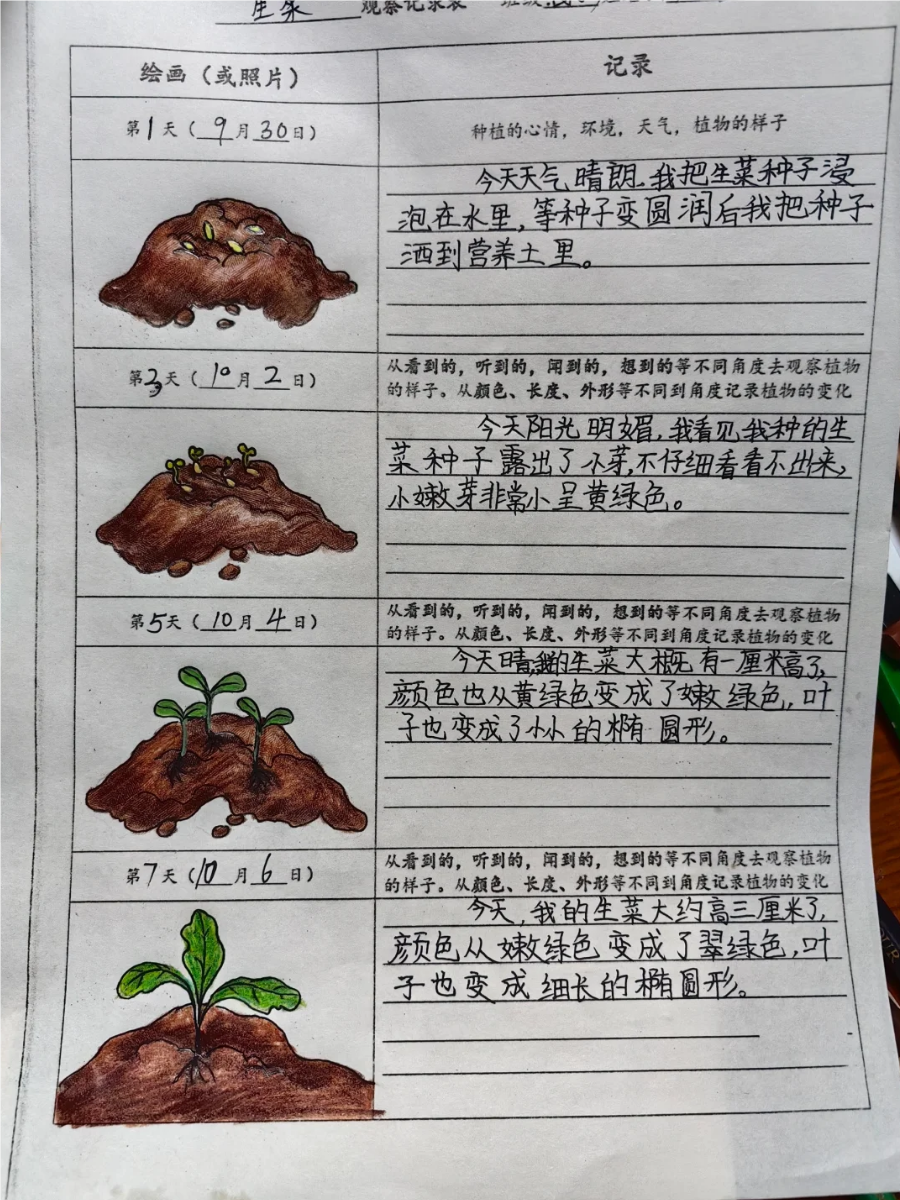 生菜 观察记录表 班级
绘画（或照片）
记录
第1天（9月30日）
种植的心情，环境，天气，植物的样子
今天天气晴朗.我把生菜种子浸
泡在水里，等种子变圆润后我把种子
洒到营养土里。
第3天（10月2日）
从看到的，听到的，闻到的，想到的等不同角度去观察植物
的样子。从颜色、长度、外形等不同到角度记录植物的变化
今天阳光明媚，我看见我种的生
菜种子露出了小芽，不仔细看看不出来，
小嫩芽非常小呈黄绿色。
第5天（10月4日）
从看到的，听到的，闻到的，想到的等不同角度去观察植物
的样子。从颜色、长度、外形等不同到角度记录植物的变化
今天晴，我的生菜大概有一厘米高了，
颜色也从黄绿色变成了嫩绿色，叶
子也变成了小小的椭圆形。
第7天（10月6日）
从看到的，听到的，闻到的，想到的等不同角度去观察植物
的样子。从颜色、长度、外形等不同到角度记录植物的变化
今天，我的生菜大约高三厘米了，
颜色从嫩绿色变成了翠绿色，叶
子也变成细长的椭圆形。